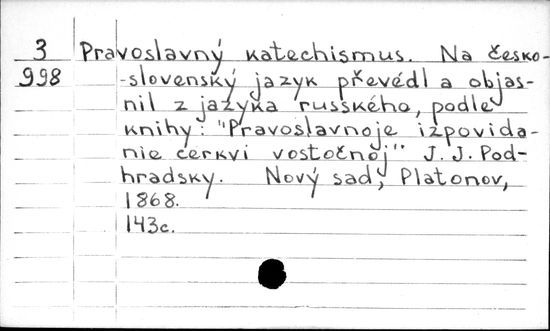 3 Pravoslavný katechismus. Na česko-
998 -slovenský jazyk převédl a objas-
nil z jazyka rusského, podle
knihy: "Pravoslavnoje izpovida-
nie cerkvi vostočnoj" J. J. Pod-
hradsky. Nový sad, Platonov,
1868.
143c.